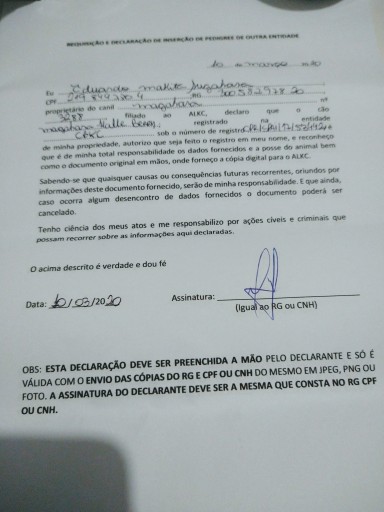 REQUISIÇÃO E DECLARAÇÃO DE INSERÇÃO DE PEDIGREE DE OUTRA ENTIDADE
10 de março, 2020
Eu Eduardo makito Sugahara
CPF RG nº
proprietário do canil magahara
3288 filiado ao ALKC, declaro que o cão
magahara registrado na entidade
CPKC sob o número de registro
de minha propriedade, autorizo que seja feito o registro em meu nome, e reconheço
que é de minha total responsabilidade os dados fornecidos e a posse do animal bem
como o documento original em mãos, onde forneço a cópia digital para o ALKC.
Sabendo-se que quaisquer causas ou consequências futuras recorrentes, oriundos por
informações deste documento fornecido, serão de minha responsabilidade. E que ainda,
caso ocorra algum desencontro de dados fornecidos o documento poderá ser
cancelado.
Tenho ciência dos meus atos e me responsabilizo por ações cíveis e criminais que
possam recorrer sobre as informações aqui declaradas.
O acima descrito é verdade e dou fé
Data: 10/03/2020 Assinatura:
(Igual ao RG ou CNH)
OBS: ESTA DECLARAÇÃO DEVE SER PREENCHIDA A MÃO PELO DECLARANTE E SÓ É
VÁLIDA COM O ENVIO DAS CÓPIAS DO RG E CPF OU CNH DO MESMO EM JPEG, PNG OU
FOTO. A ASSINATURA DO DECLARANTE DEVE SER A MESMA QUE CONSTA NO RG CPF
OU CNH.